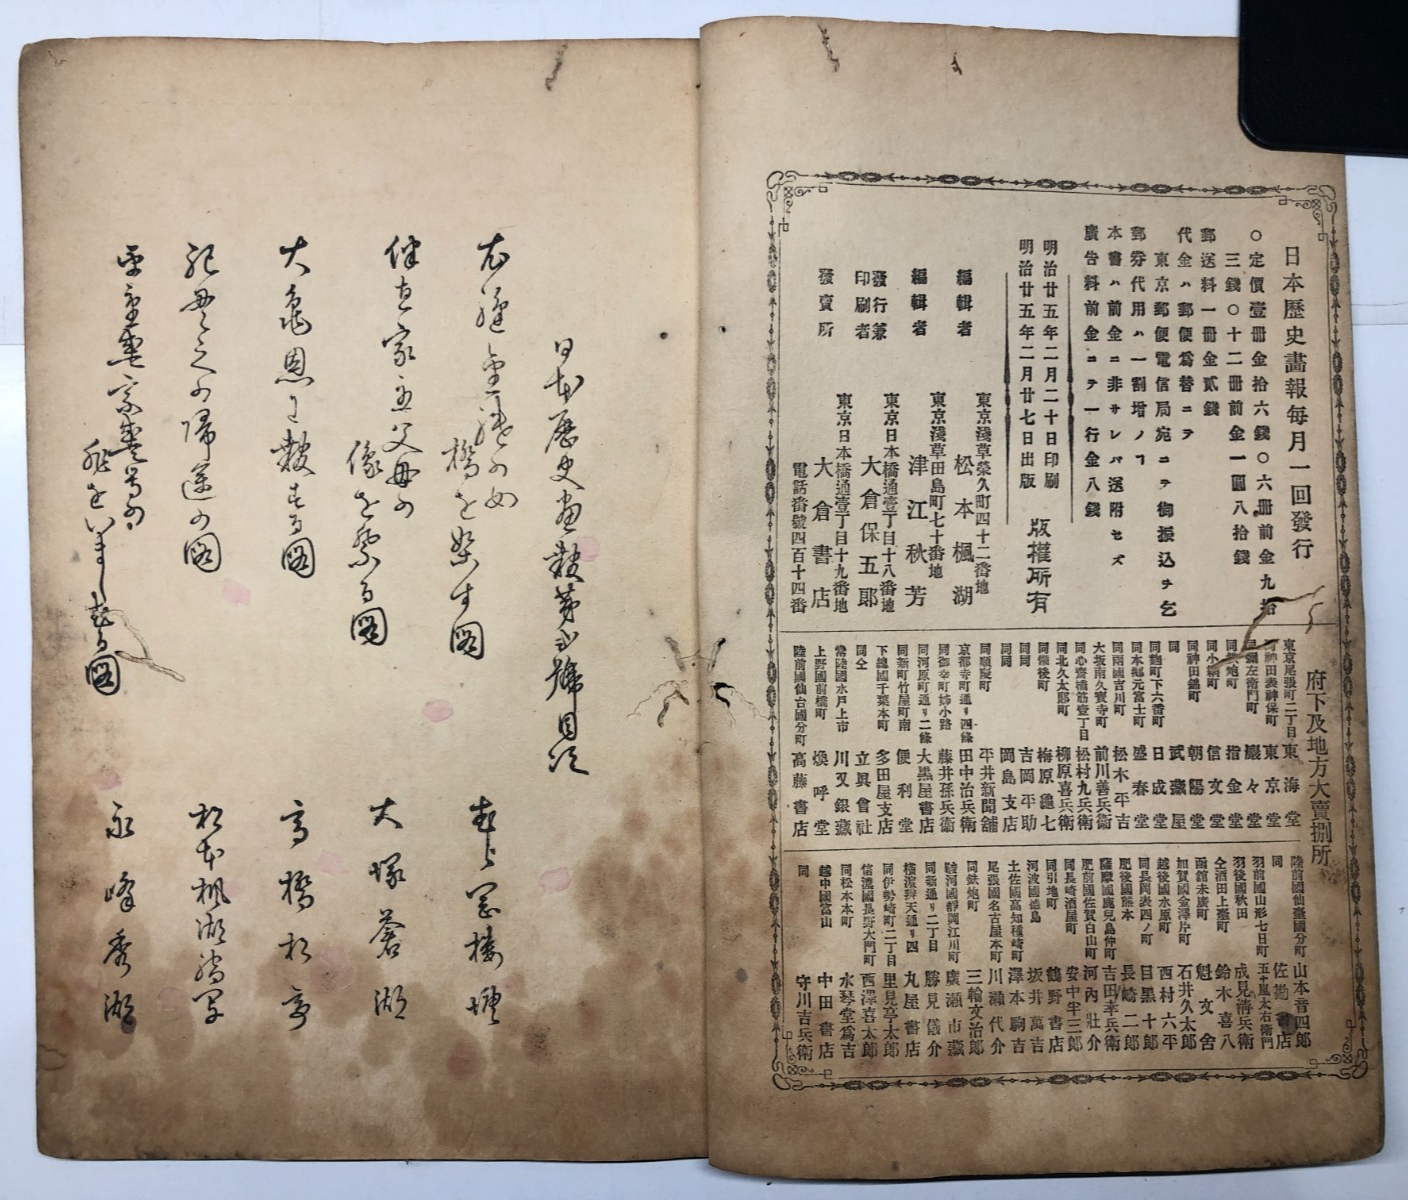 日本歴史畫報毎月一回發行
○定價壹册金拾六錢○六册前金九拾
三錢○十二册前金一圓八拾錢
郵送料一册金貳錢
代金ハ郵便爲替ニテ
東京郵便電信局宛ニテ御振込ヲ乞
郵券代用ハ一割增ノヿ
本書ハ前金ニ非サレハ送附セズ
廣告料前金ニテ一行金八錢
明治廿五年二月二十日印刷
明治廿五年二月廿七日出版
版權所有
編輯者 東京淺草榮久町四十二番地 松本楓湖
編輯者 東京淺草田島町七十番地 津江秋芳
發行兼印刷者 東京日本橋通壹丁目十八番地 大倉保五郎
發賣所 東京日本橋通壹丁目十九番地 大倉書店
電話番號四百十四番
府下及地方大賣捌所
東京尾張町二丁目 東海堂
同神田表神保町 東京堂
同鎗左衛門町 巖々堂
同鉄炮町 指金堂
同小網町 信文堂
同神田錦町 朝陽堂
同 武藏屋
同麹町下六番町 日成堂
同本郷元富士町 盛春堂
同兩國吉川町 松木平吉
大坂南久寳寺町 前川善兵衞
同心齋橋筋壹丁目 松村九兵衞
同北久太郎町 柳原喜兵衞
同備後町 梅原龜七
同同 吉岡平助
同同 岡島支店
同順慶町 平井新聞舗
京都寺町通リ四條 田中治兵衞
同御幸町姉小路 藤井孫兵衞
同河原町通リ二條 大黒屋書店
同新町竹屋町南 便利堂
下總國千葉本町 多田屋支店
同仝 立眞會社
常陸國水戸上市 川又銀藏
上野國前橋町 煥呼堂
陸前國仙台國分町 高藤書店
陸前國仙臺國分町 山本音四郎
同 佐勘書店
羽前國山形七日町 五十嵐太右衛門
羽後國秋田 成見清兵衞
仝酒田上臺町 鈴木喜八
函館末廣町 魁文舍
加賀國金澤片町 石井久太郎
越後國水原町 西村六平
同長岡表四ノ町 目黒十郎
肥後國熊本 長崎二郎
薩摩國鹿兒島仲町 吉田幸兵衞
肥前國佐賀白山町 河内壯介
同長崎酒屋町 安中半三郎
同引地町 鶴野書店
阿波國德島 坂井萬吉
土佐國高知種崎町 澤本駒吉
尾張國名古屋本町 川瀬代介
同鉄炮町 三輪文治郎
駿河國靜岡江川町 廣瀬市藏
同新通リ二丁目 勝見儀介
横濱辨天通リ四 丸屋書店
同伊勢崎町二丁目 里見亭太郎
信濃國長野大門町 西澤喜太郎
同松本本町 水琴堂爲吉
越中國富山 中田書店
同 守川吉兵衞
日本歴史画報第弐號目次
橘を架す図
伴直家主父母の
像を祭る図 大塚蒼湖
大亀恩に報する図 高橋松亭
紀貫之の帰途の図 松本楓湖
図 永峰秀湖